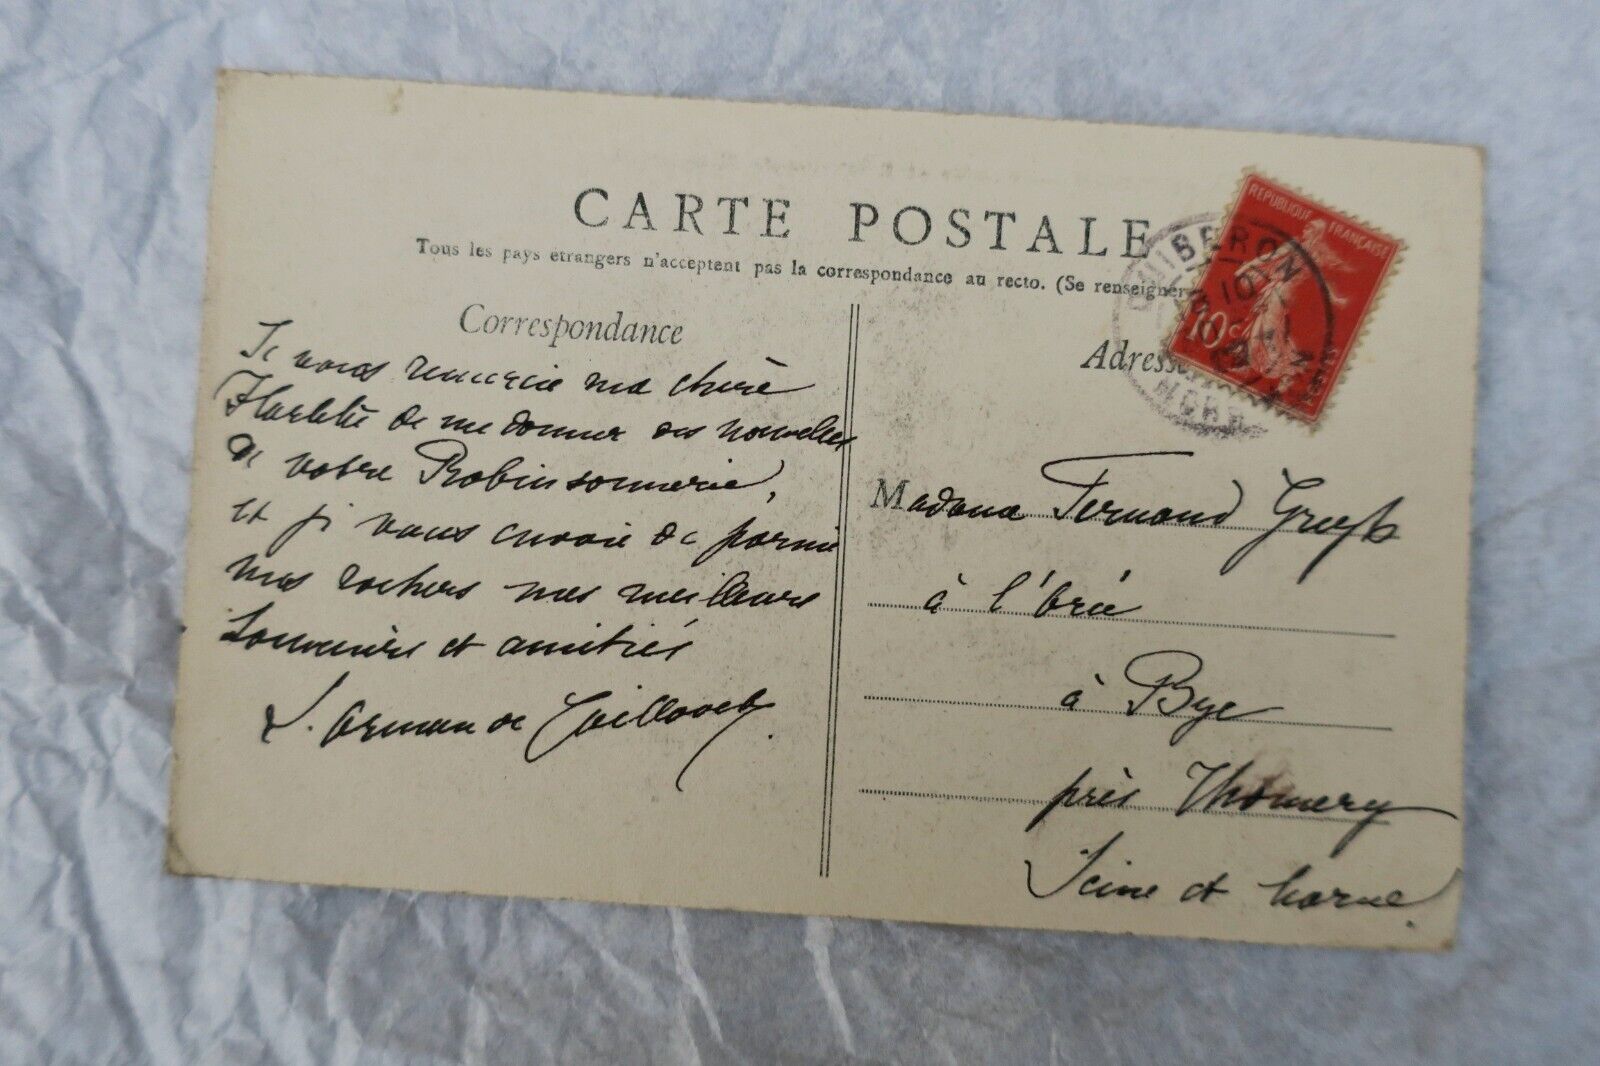 CARTE POSTALE
Tous les pays étrangers n'acceptent pas la correspondance au recto. (Se renseigner
Correspondance
Je vous remercie ma chère
de me donner des nouvelles
de votre Robinsonnerie,
et je vous envoie de parmi
mes rochers mes meilleurs
souvenirs et amitiés
L. Arman de Caillavet
REPUBLIQUE FRANÇAISE
10c
QUIBERON
10
Adresse
Madame Fernand Gregh
à
à Bye
près Thomery
Seine et Marne.